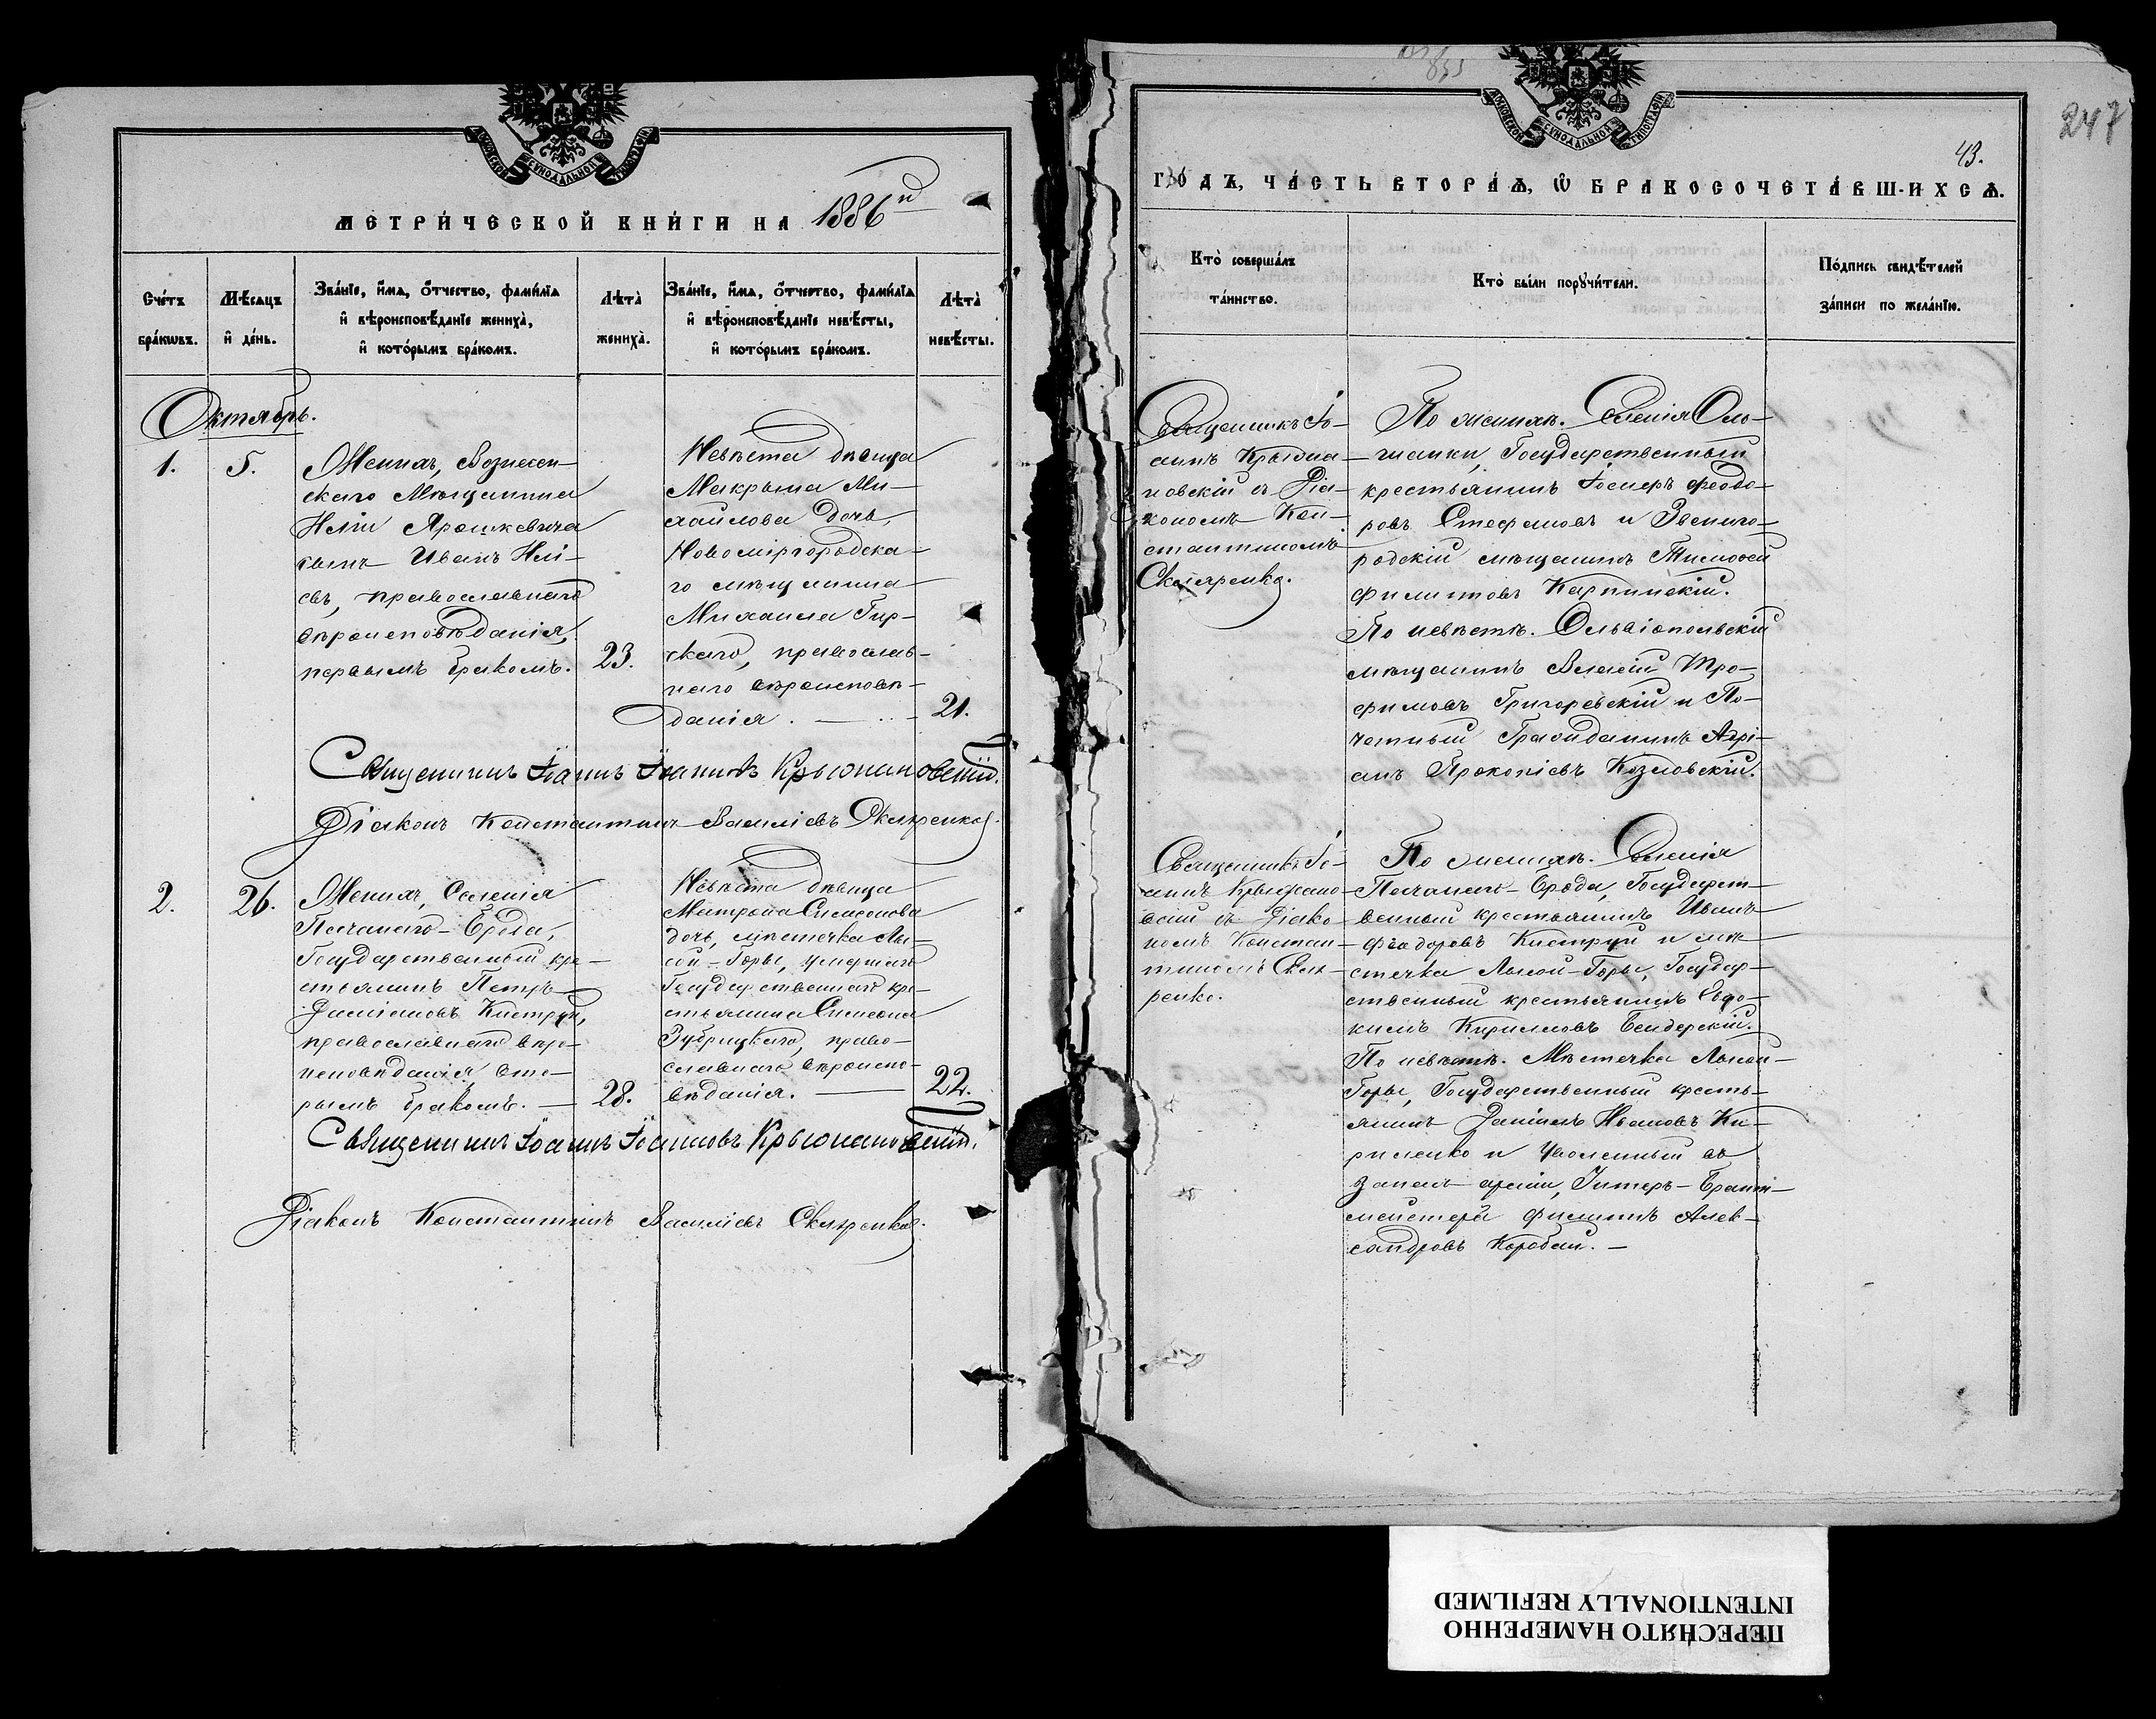 МОСКОВСКОЙ СѴНОДАЛЬНОЙ ТИПОГРАФІИ
МЕТРИ́ЧЕСКОЙ КНИ́ГИ НА 1886й
Сче́тъ бра́кωвъ.
Мѣ́сяцъ и҆ де́нь.
Зва́нїе, и҆́мѧ, ѻ҆́тчество, фами́лїѧ
и҆ вѣ̀роисповѣ́данїе женихà,
и҆ кото́рымъ бра́комъ.
Лѣта̀
женихà.
Зва́нїе, и҆́мѧ, ѻ҆́тчество, фами́лїѧ
и҆ вѣ̀роисповѣ́данїе невѣ́сты,
и҆ кото́рымъ бра́комъ.
Лѣта̀
невѣ́сты.
Октябрь.
1.
5.
Женихъ, Вознесен-
скаго Мѣщанина
Иліи Ярошкевича
сынъ Иванъ Илі-
евъ, православнаго
вѣроисповѣданія,
первымъ бракомъ.
23.
Невѣста дѣвица
Макрына Ми-
хайлова дочь,
Новомиргородска-
го мѣщанина
Михаила Гир-
скаго, православ-
наго вѣроисповѣ-
данія.
21.
Священникъ Іоаннъ Іоанновъ Крыжановскій.
Діаконъ Константинъ Василіевъ Скляренко.
2.
26.
Женихъ, Селенія
Песчанаго-Брода,
Государственный кре-
стьянинъ Петръ
Даміановъ Киструн,
православнаго вѣро-
исповѣданія, вто-
рымъ бракомъ.
28.
Невѣста дѣвица
Матрона Симеонова
дочь, мѣстечка Лы-
сой-Горы, умершаго
Государственнаго кре-
стьянина Симеона
Зубрицкаго, право-
славнаго вѣроиспо-
вѣданія.
22.
Священникъ Іоаннъ Іоанновъ Крыжановскій.
Діаконъ Константинъ Василіевъ Скляренко.
247
43.
МОСКОВСКОЙ СѴНОДАЛЬНОЙ ТИПОГРАФІИ
ГО́ДЪ, ЧА́СТЬ ВТОРА́Ѧ, Ѡ҆ БРАКОСОЧЕТА́ВШ-ИХСѦ.
Кто̀ соверша́лъ
та́инство.
Кто̀ бы́ли порꙋчи́тели.
По́дпись свидѣ́телей
за́писи по жела́нїю.
Священникъ Іо-
аннъ Крыжа-
новскій съ Діа-
кономъ Кон-
стантиномъ
Скляренко.
По женихѣ. Селенія Оль-
шанки, Государственный
крестьянинъ Іосифъ Ѳеодо-
ровъ Стефановъ и Звениго-
родскій мѣщанинъ Тимоѳей
Филиповъ Карпинскій.
По невѣстѣ. Ольвіопольскій
мѣщанинъ Алексій Тро-
фимовъ Григоревскій и По-
четный Гражданинъ Адрі-
анъ Прокопіевъ Козловскій.
Священникъ Іо-
аннъ Крыжано-
вскій съ Діако-
номъ Констан-
тиномъ Скля-
ренко.
По женихѣ. Селенія
Песчанаго-Брода, Государст-
венный крестьянинъ Иванъ
Ѳеодоровъ Киструн и мѣ-
стечка Лысой-Горы, Государ-
ственный крестьянинъ Евдо-
кимъ Кириловъ Бендерскій.
По невѣстѣ. Мѣстечка Лысой-
Горы, Государственный кресть-
янинъ Даніилъ Ивановъ Ки-
риленко и Уволенный въ
запасъ арміи, Унтеръ-
Филиппъ Алек-
сандровъ Коробаи.
ПЕРЕСНЯТО НАМЕРЕННО
INTENTIONALLY REFILMED